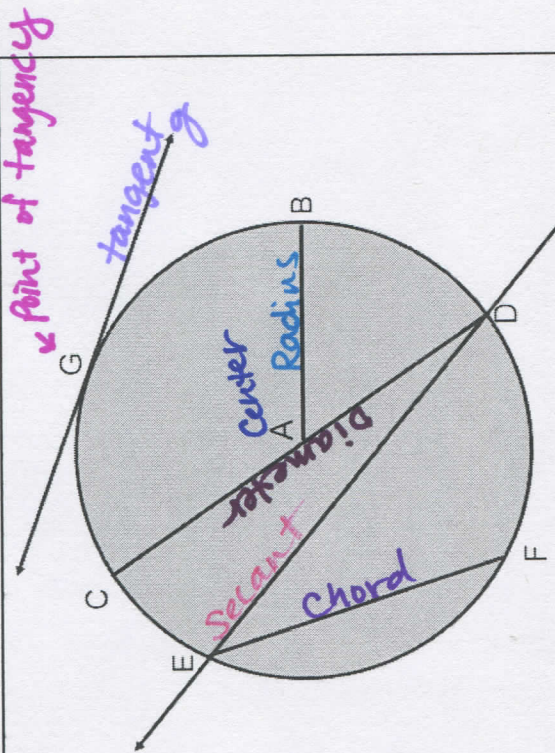 Point of tangency
tangent g
G
B
Center
A
Radius
C
Diameter
D
E
Secant
Chord
F